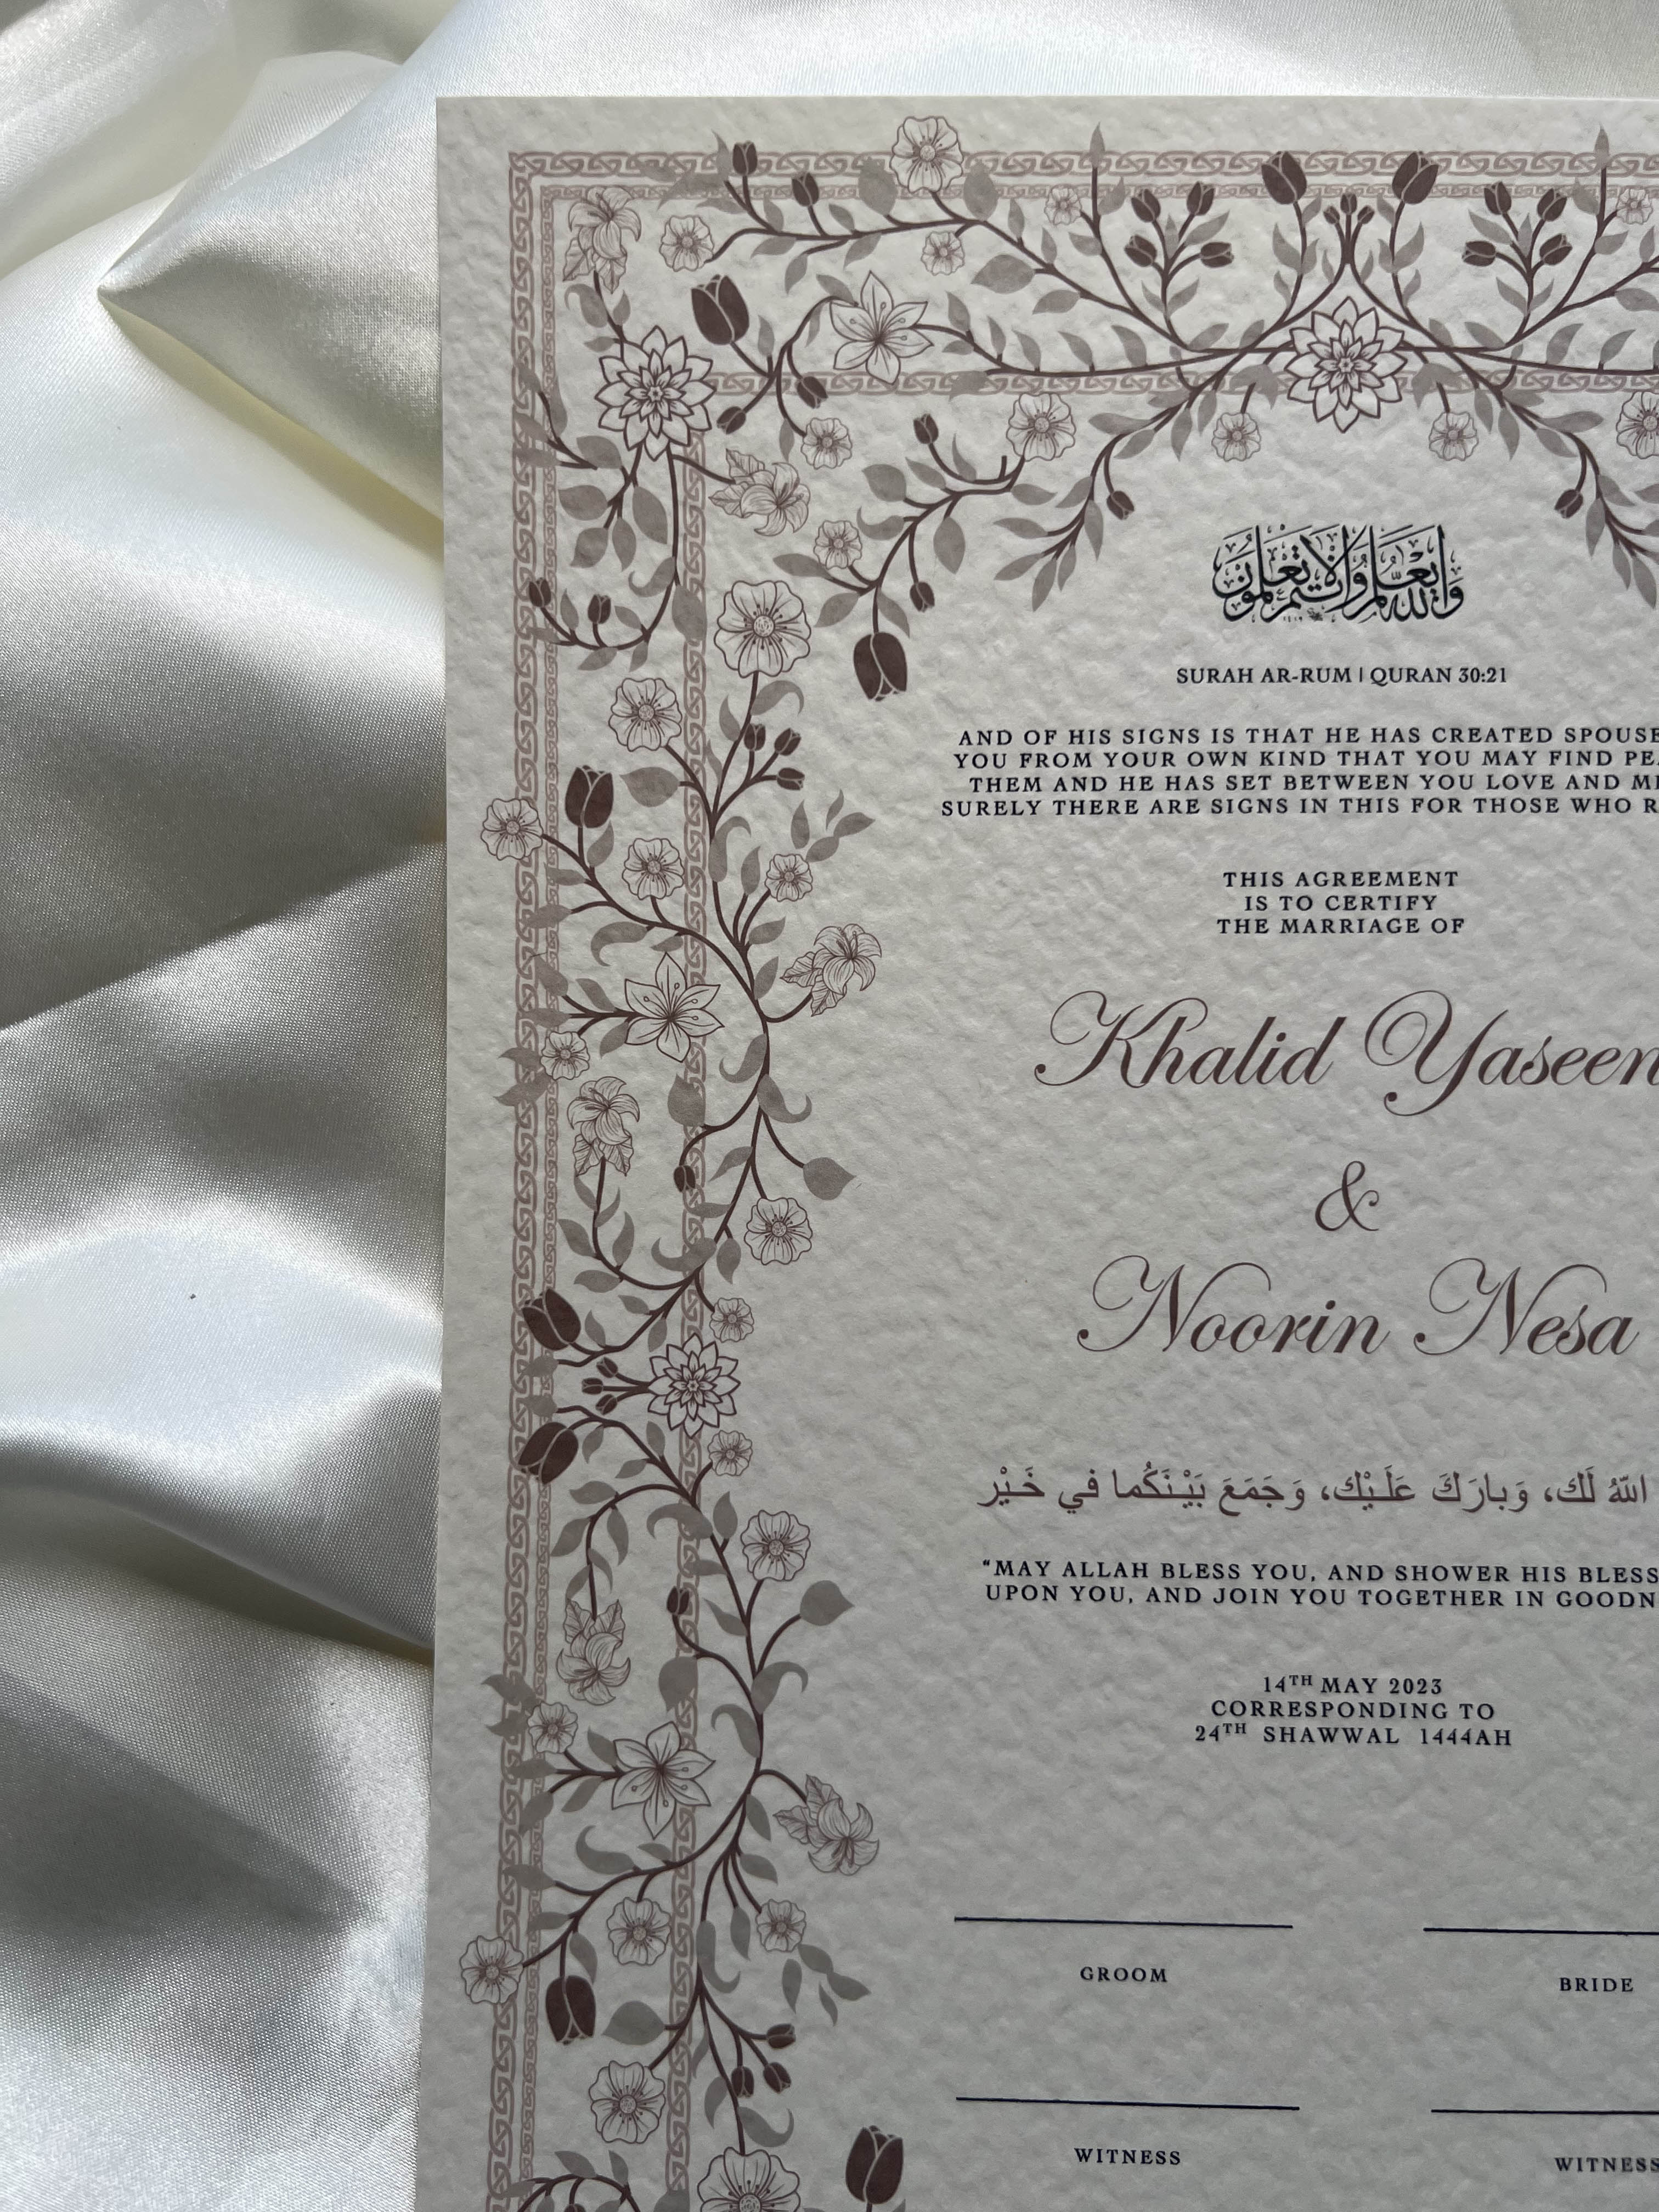 والله يعلم وأنتم لا تعلمون
SURAH AR-RUM | QURAN 30:21
AND OF HIS SIGNS IS THAT HE HAS CREATED SPOUSE
YOU FROM YOUR OWN KIND THAT YOU MAY FIND PEA
THEM AND HE HAS SET BETWEEN YOU LOVE AND ME
SURELY THERE ARE SIGNS IN THIS FOR THOSE WHO R
THIS AGREEMENT
IS TO CERTIFY
THE MARRIAGE OF
Khalid Yaseen
&
Noorin Nesa
اللهُ لَكَ، وَبارَكَ عَلَـيْك، وَجَمَعَ بَيْـنَكُما في خَـيْر
“MAY ALLAH BLESS YOU, AND SHOWER HIS BLESS
UPON YOU, AND JOIN YOU TOGETHER IN GOODN
14TH MAY 2023
CORRESPONDING TO
24TH SHAWWAL 1444AH
GROOM
BRIDE
WITNESS
WITNESS